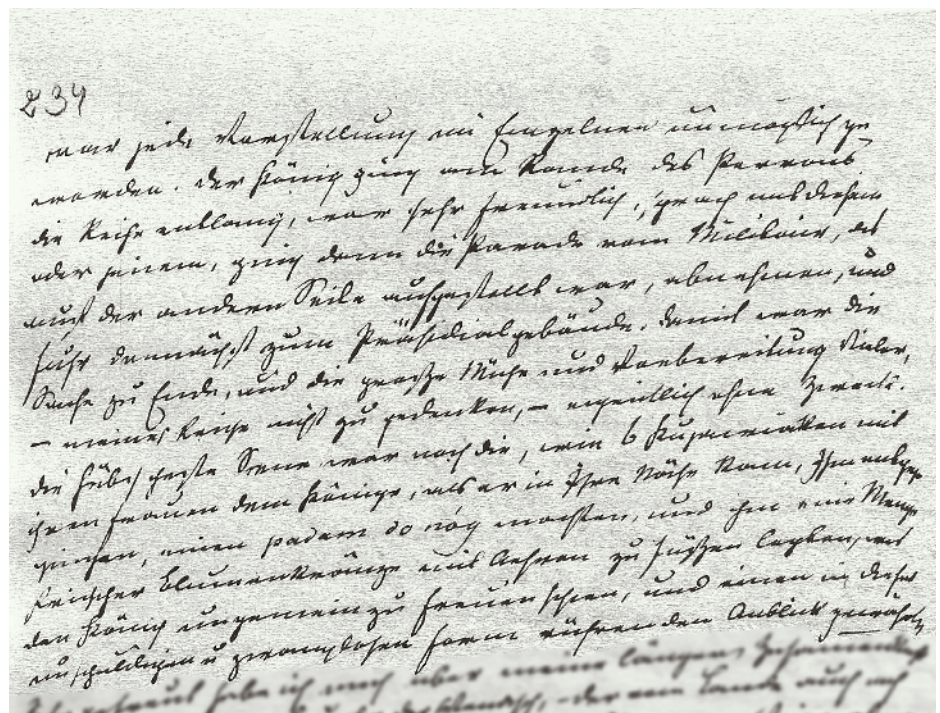 234
war jede Vorstellung im Einzelnen unmöglich ge-
worden. Der König ging am Rande des Perrons
die Reihe entlang, war sehr freundlich, sprach mit diesem
oder jenem, ging dann die Parade vom Militair, das
auf der andern Seite aufgestellt war, abnehmen, und
fuhr demnächst zum Präsidialgebäude. Damit war die
Sache zu Ende, und die große Mühe und Vorbereitung Vieler,
– meiner Reise nicht zu gedenken, – eigentlich ohne Zweck.
Die hübscheste Scene war noch die, wie 6 Kujawiaken mit
ihren Frauen dem Könige, als er in Ihre Nähe kam, Ihm entgegen
gingen, einen padam do nóg machten, und ihm eine Menge
frischer Blumenkränze mit Aehren zu Füßen legten, was
den König ungemein zu freuen schien, und einen in dieser
unschuldigen u zwanglosen Form rührenden Anblick gewährte
habe ich mich über meine